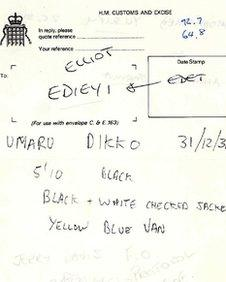 H.M. CUSTOMS AND EXCISE
In reply, please
quote reference
Your reference
72.7
64.8
To:
ELLIOT
EDIEYI
Date Stamp
(For use with envelope C. & E. 163)
UMARU DIKKO 31/12/3
5'10 BLACK
BLACK + WHITE CHECKED JACKE
YELLOW BLUE VAN
JERRY DAVIS F.O
PROTOCOL